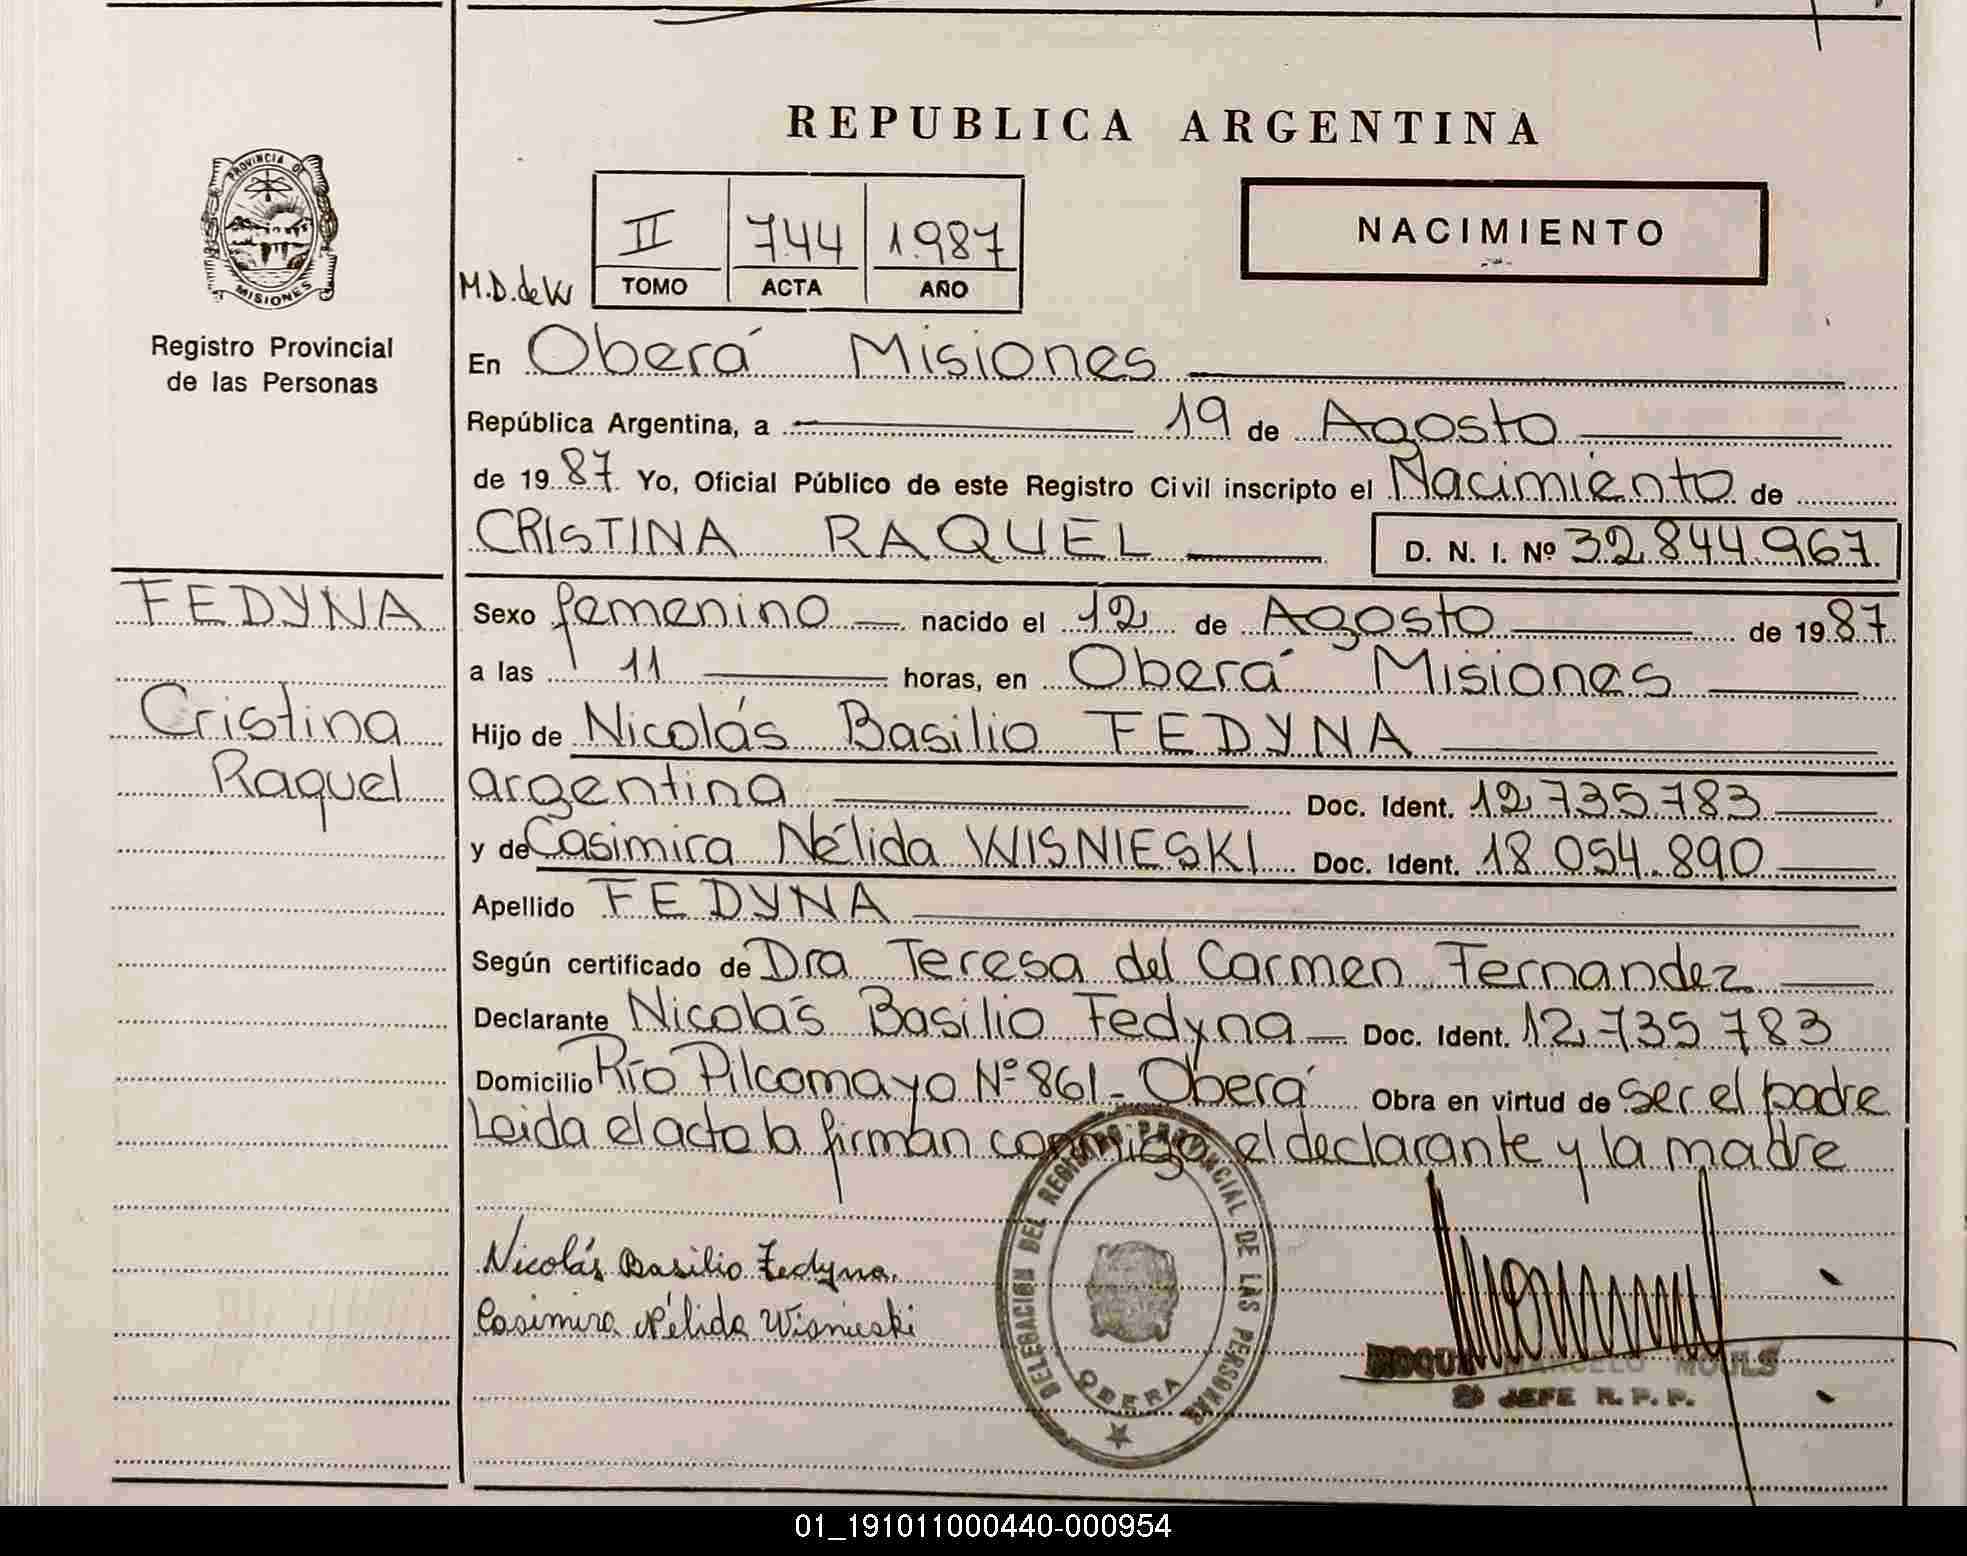 REPUBLICA ARGENTINA
PROVINCIA DE
MISIONES
Registro Provincial
de las Personas
II 744 1.987
TOMO ACTA AÑO
NACIMIENTO
M.D. de
En Oberá Misiones
República Argentina, a 19 de Agosto
de 1987 Yo, Oficial Público de este Registro Civil inscripto el Nacimiento de
CRISTINA RAQUEL D. N. I. Nº 32.844.967
FEDYNA
Cristina
Raquel
Sexo femenino nacido el 12 de Agosto de 1987
a las 11 horas, en Oberá Misiones
Hijo de Nicolás Basilio FEDYNA
argentina Doc. Ident. 12.735.783
y de Casimira Nélida WISNIESKI Doc. Ident. 18.054.890
Apellido FEDYNA
Según certificado de Dra Teresa del Carmen Fernandez
Declarante Nicolás Basilio Fedyna Doc. Ident. 12.735 783
Domicilio Río Pilcomayo Nº 861- Oberá Obra en virtud de ser el padre
Leida el acta la firman conmigo el declarante y la madre
Nicolás Basilio Fedyna.
Casimira Nélida Wisnieski
DELEGACION DEL REGISTRO PROVINCIAL DE LAS PERSONAS
OBERA
JEFE R. P. P.
01_191011000440-000954